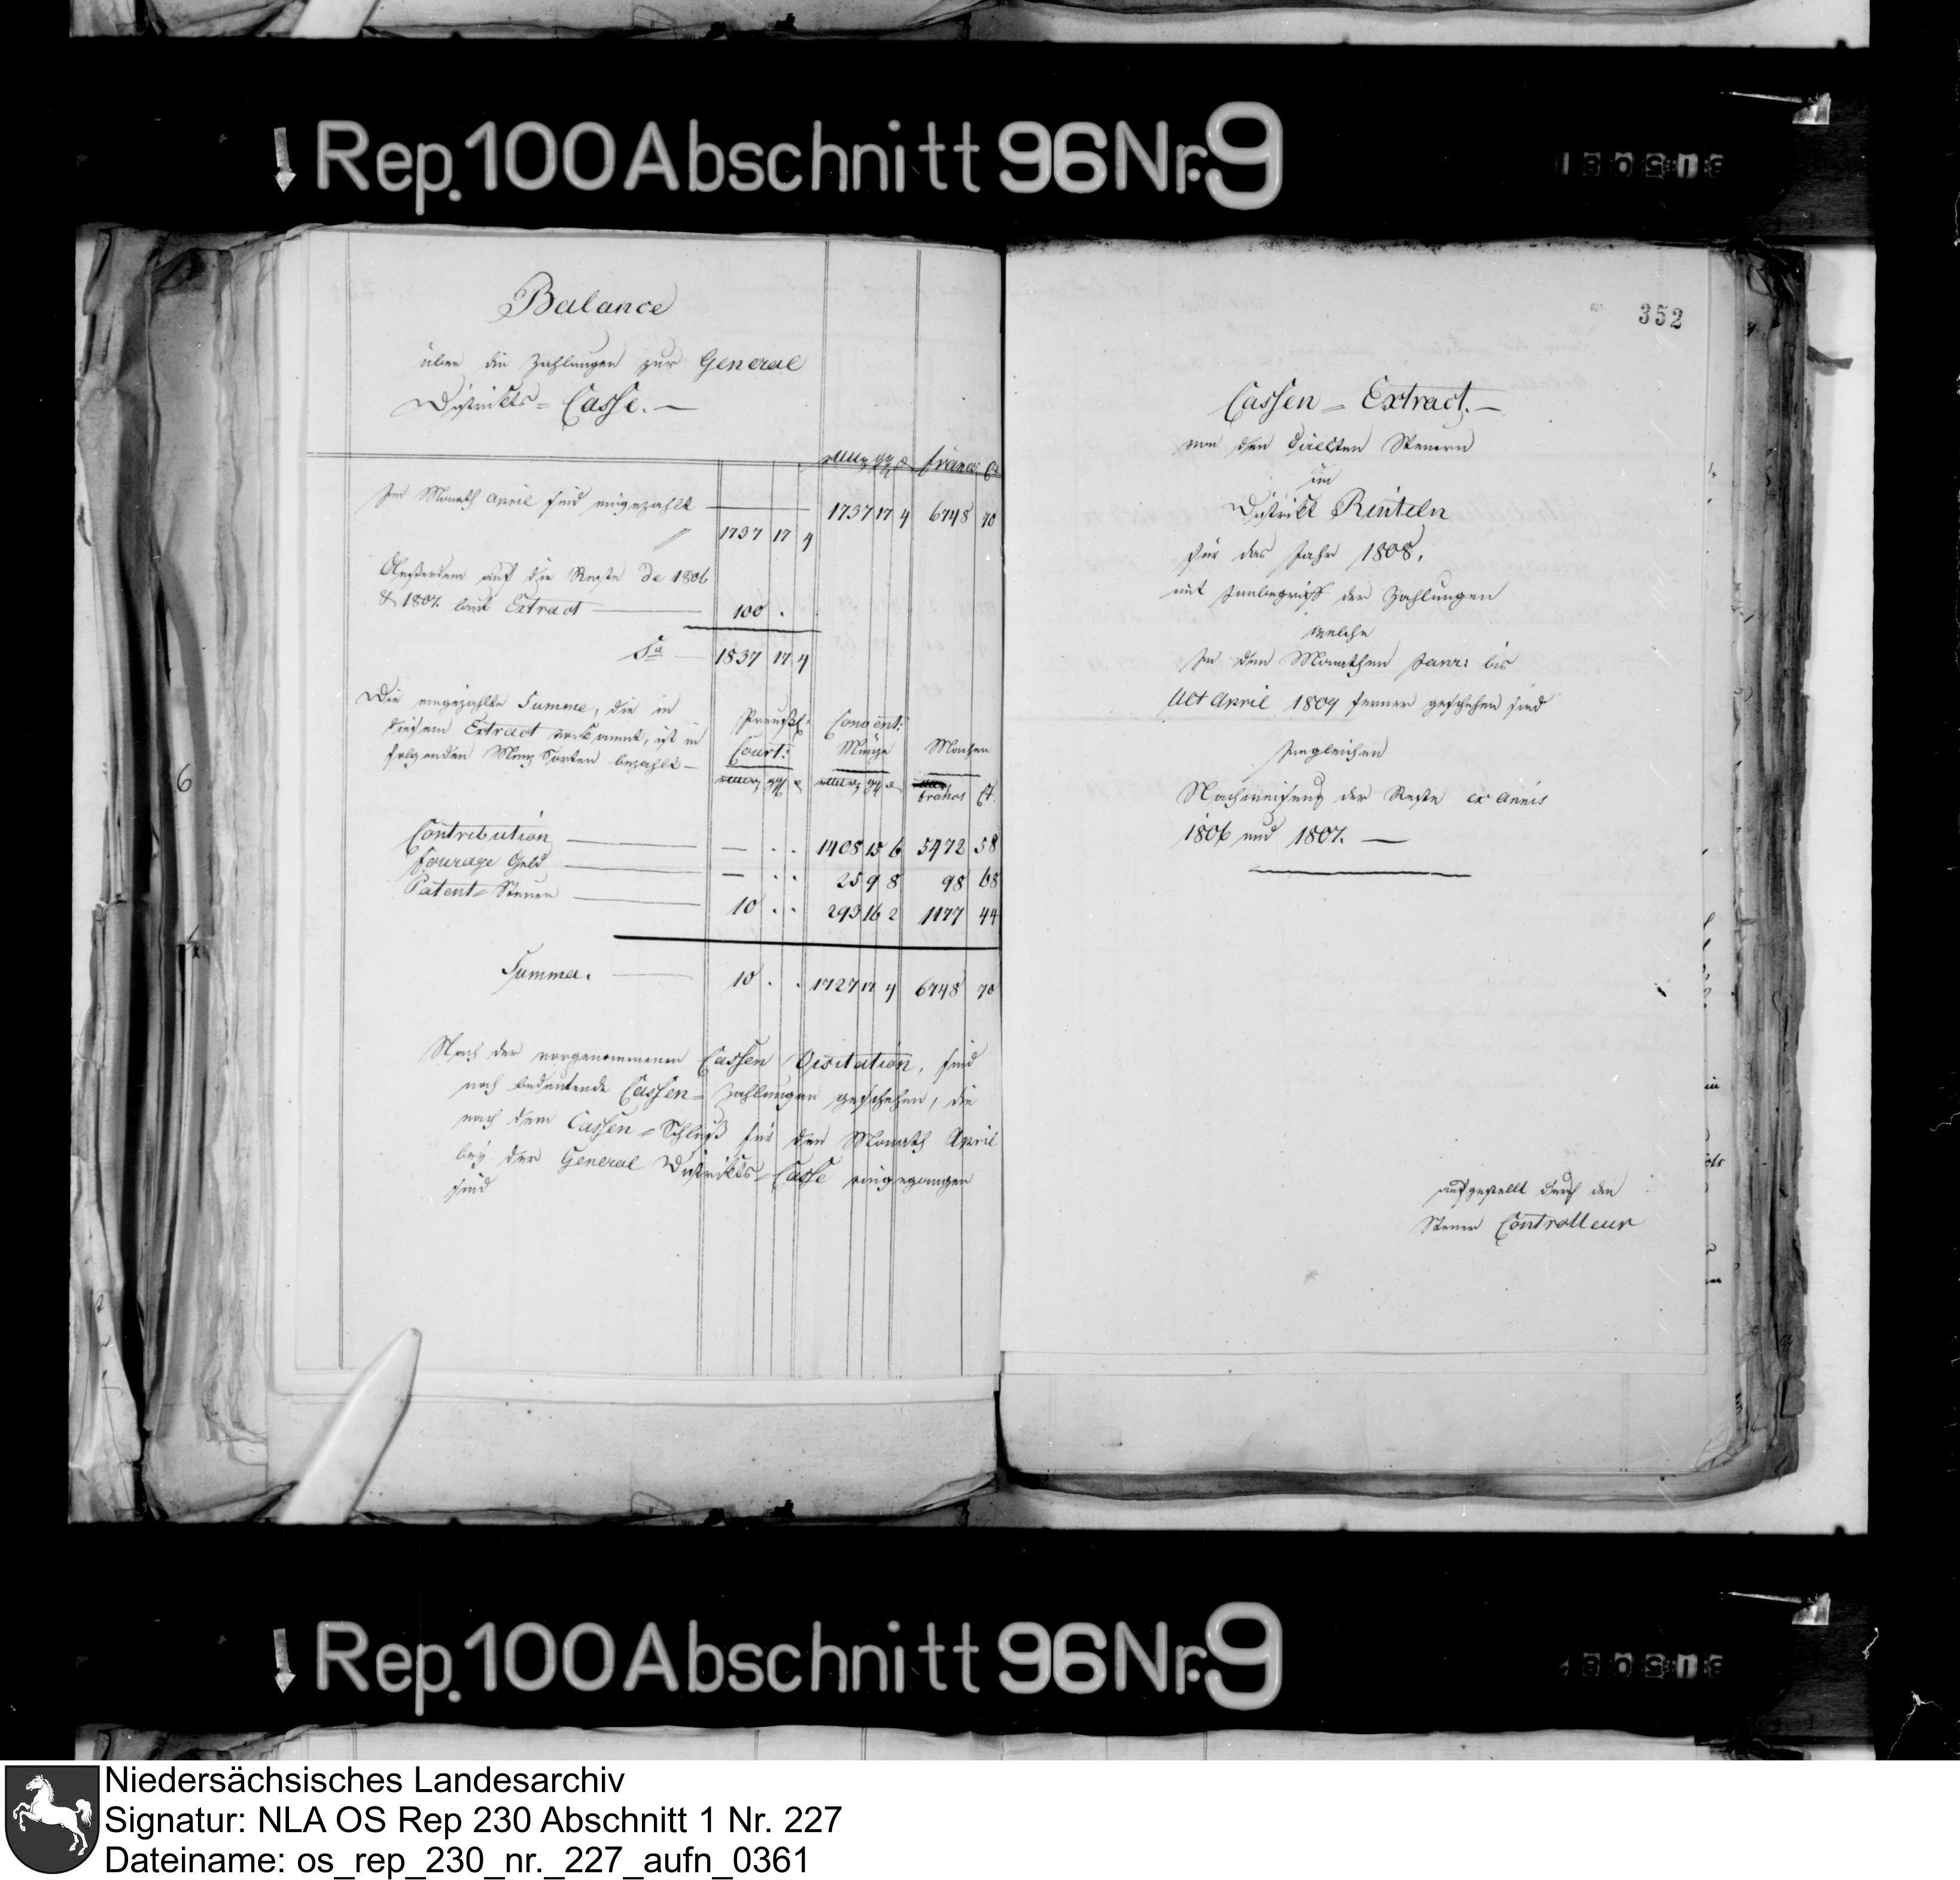 Rep. 100 Abschnitt 96 Nr. 9
Balance
über die Zahlungen zur General
Distrikts-Casse. —
rthlr ggr d francs Ct
Im Monath April sind eingezahlt — 1737 17 4 6748 70
1737 17 4
Außerdem auf die Reste de 1806
& 1807. laut Extract — 100 . .
Sa — 1837 17 4
Die eingezahlte Summe, die in
diesem Extract vorkommt, ist in
folgenden Münz Sorten bezahlt —
Preußs. Convent:
Court: Münze Machen
rthlr ggr d rthlr ggr d francs Ct.
Contribution — — . . 1408 15 6 5472 58
Fourage Geld — — . . 25 9 8 98 68
Patent-Steuer — 10 . . 293 16 2 1177 44
Summa. — 10 . . 1727 17 4 6748 70
Nach der vorgenommenen Cassen Visitation, sind
noch bedeutende Cassen-Zahlungen geschehen, die
nach dem Cassen-Schluß für den Monath April
bey der General Distrikts-Casse eingegangen
sind
352
Cassen-Extract. —
von den directen Steuern
im
Distrikt Rinteln
für das Jahr 1808.
mit Innbegriff der Zahlungen
welche
In den Monathen Janr: bis
Ult April 1809 ferner geschehen sind
Imgleichen
Nachweisung der Reste ex annis
1806 und 1807. —
aufgestellt durch den
Steuer Controlleur
6
Rep. 100 Abschnitt 96 Nr. 9
Niedersächsisches Landesarchiv
Signatur: NLA OS Rep 230 Abschnitt 1 Nr. 227
Dateiname: os_rep_230_nr._227_aufn_0361